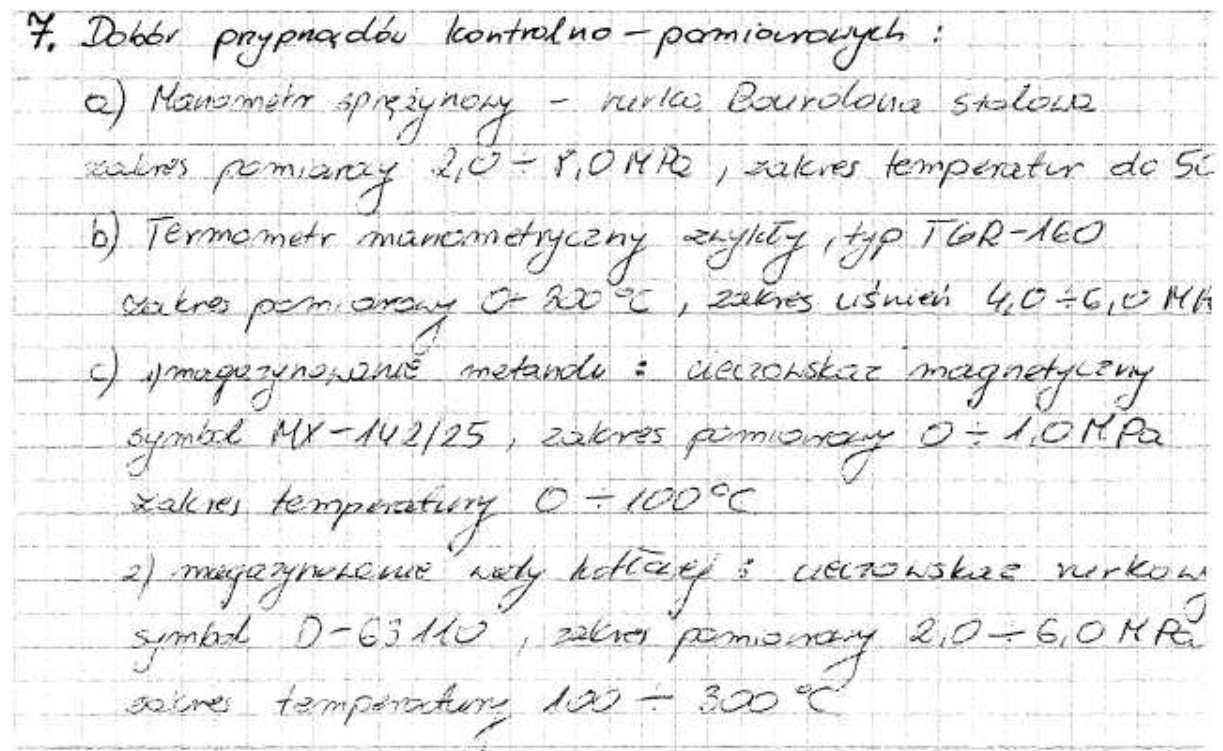 7. Dobór przyrządów kontrolno-pomiarowych :
a) Manometr sprężynowy - rurka Bourdona stalowa
zakres pomiarowy 2,0 ÷ 8,0 MPa, zakres temperatur do 50
b) Termometr manometryczny zwykły, typ TGR-160
zakres pomiarowy 0÷300 °C, zakres ciśnień 4,0÷6,0 MPa
c) 1) magazynowanie metanolu : cieczowskaz magnetyczny
symbol MX-142/25, zakres pomiarowy 0 ÷ 1,0 MPa
zakres temperatury 0 ÷ 100°C
2) magazynowanie wody kotłowej : cieczowskaz rurkowy
symbol D-63110, zakres pomiarowy 2,0 ÷ 6,0 MPa
zakres temperatury 100 ÷ 300 °C